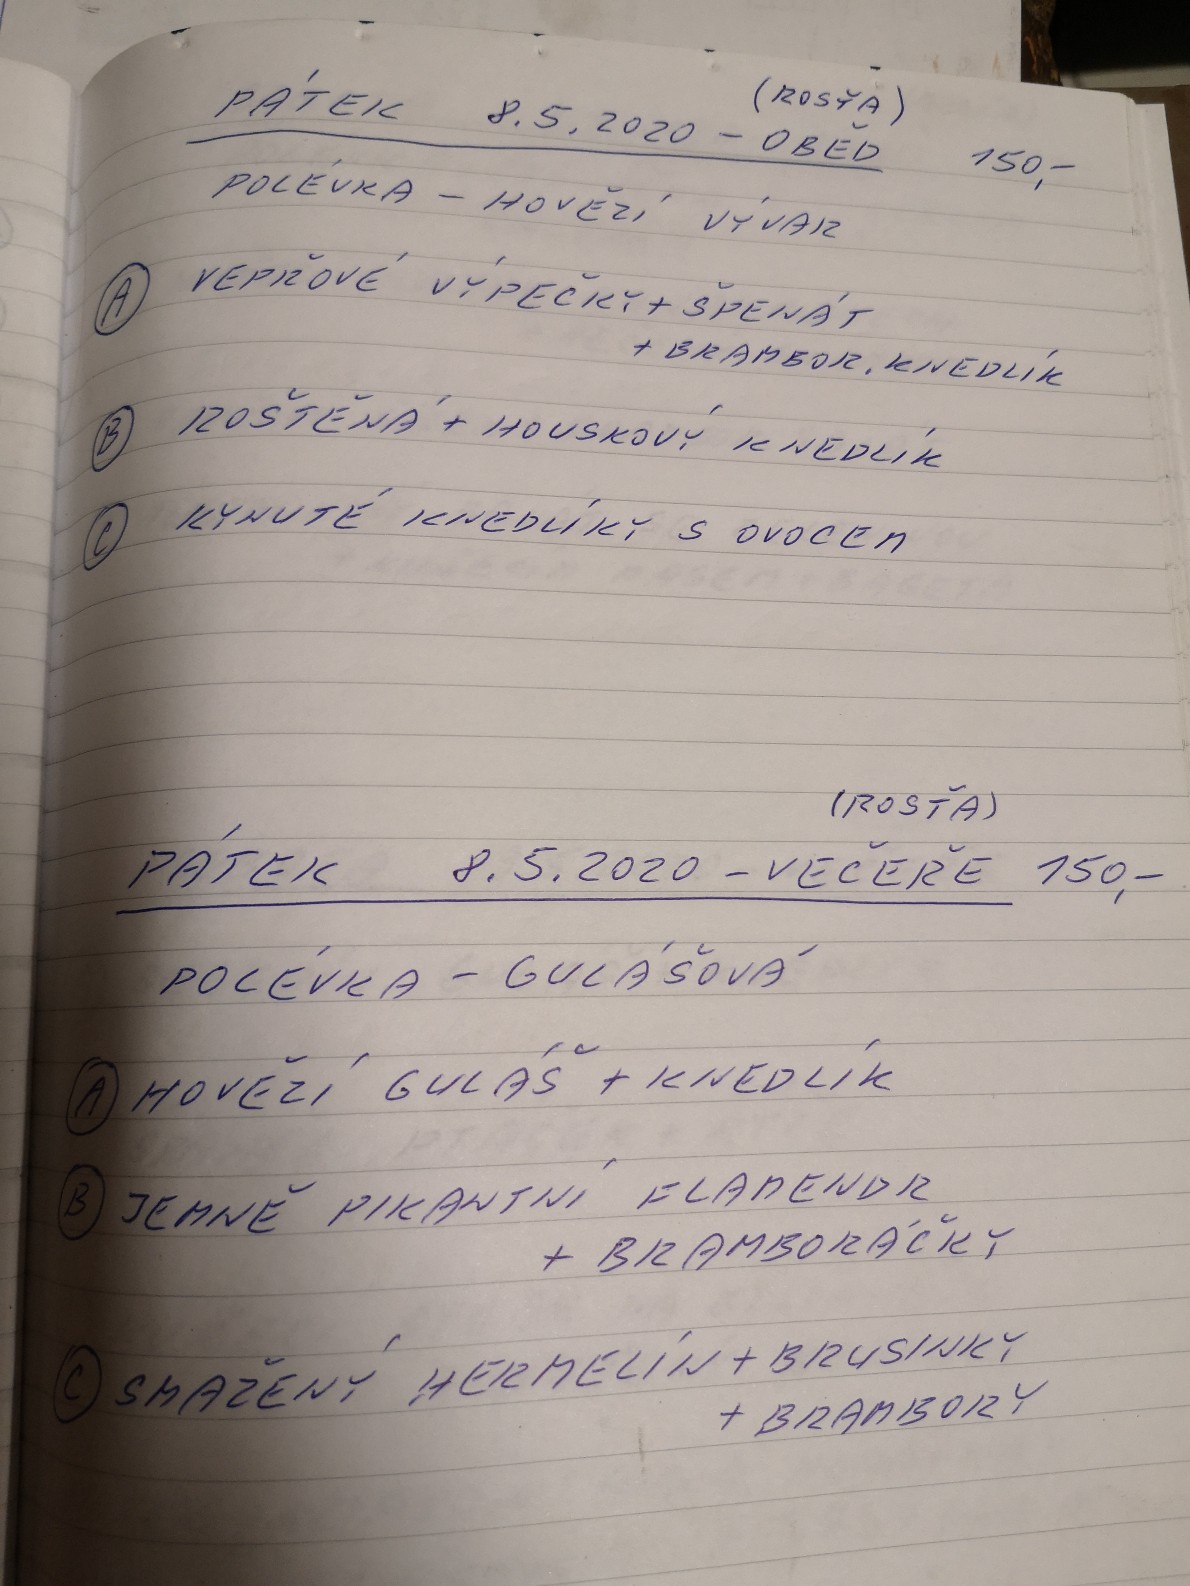 (ROSŤA)
PÁTEK 8.5.2020 - OBĚD 150,-
POLÉVKA - HOVĚZÍ VÝVAR
A VEPŘOVÉ VÝPEČKY + ŠPENÁT
+ BRAMBOR. KNEDLÍK
B ROŠTĚNÁ + HOUSKOVÝ KNEDLÍK
C KYNUTÉ KNEDLÍKY S OVOCEM
(ROSŤA)
PÁTEK 8.5.2020 - VEČEŘE 150,-
POLÉVKA - GULÁŠOVÁ
A HOVĚZÍ GULÁŠ + KNEDLÍK
B JEMNĚ PIKANTNÍ FLAMENDR
+ BRAMBORÁČKY
C SMAŽENÝ HERMELÍN + BRUSINKY
+ BRAMBORY